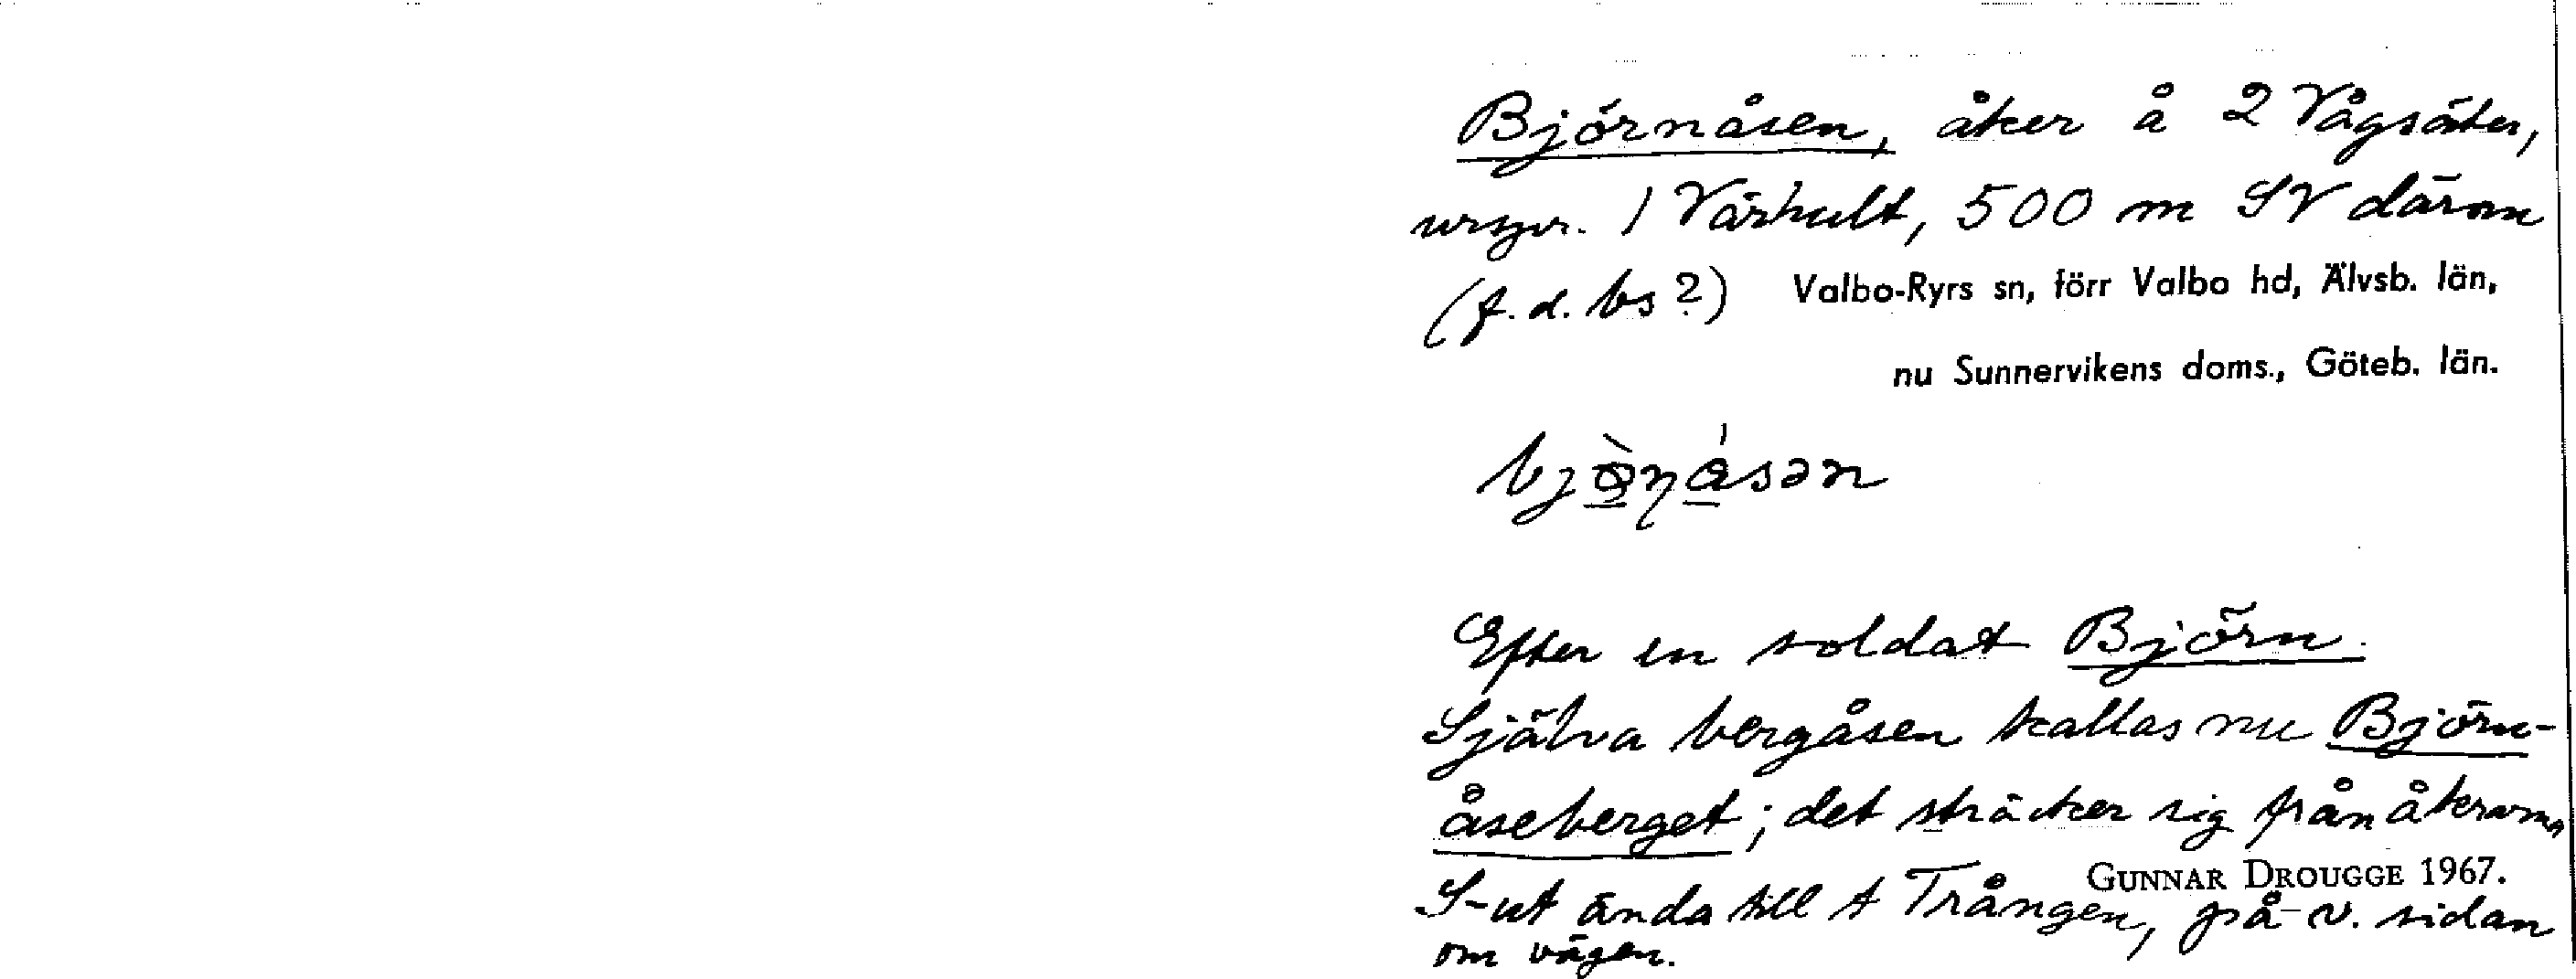 Björnåsen, åker å 2 Vågsäter,
urspr. 1 Värhult, 500 m SV därom
(f. d. bs?) Valbo-Ryrs sn, förr Valbo hd, Älvsb. län,
nu Sunnervikens doms., Göteb. län.
Efter en soldat Björn.
Själva bergåsen kallas nu Björn-
åseberget; det sträcker sig från åkrarna
GUNNAR DROUGGE 1967.
S-ut ända till t Trången, på v. sidan
om vägen.